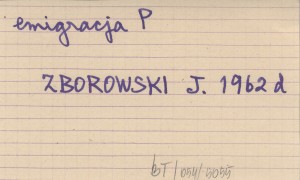 emigracja P
ZBOROWSKI J. 1962 d
BT/054/5055